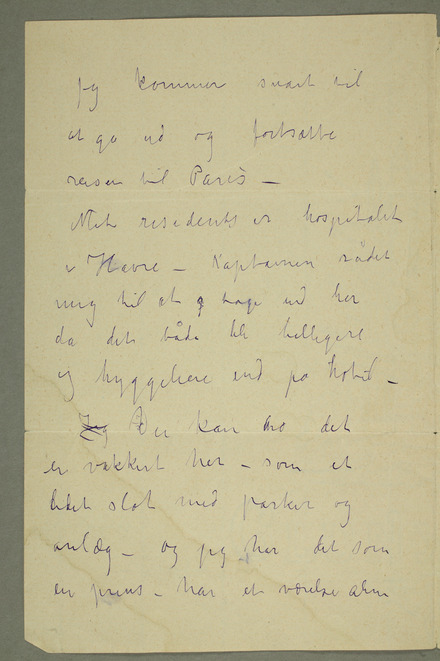 jeg kommer snart til
at gå ud og fortsætte
reisen til Paris –
Mit residents er hospitalet
i Havre – Kaptainen rådet
mig til at tage ind her
da det både ble billigere
og hyggeligere end på hotel –
Du kan tro det
er vakkert her – som et
lidet slot med parker og
anlæg – og jeg har det som
en prins – har et værelse alene